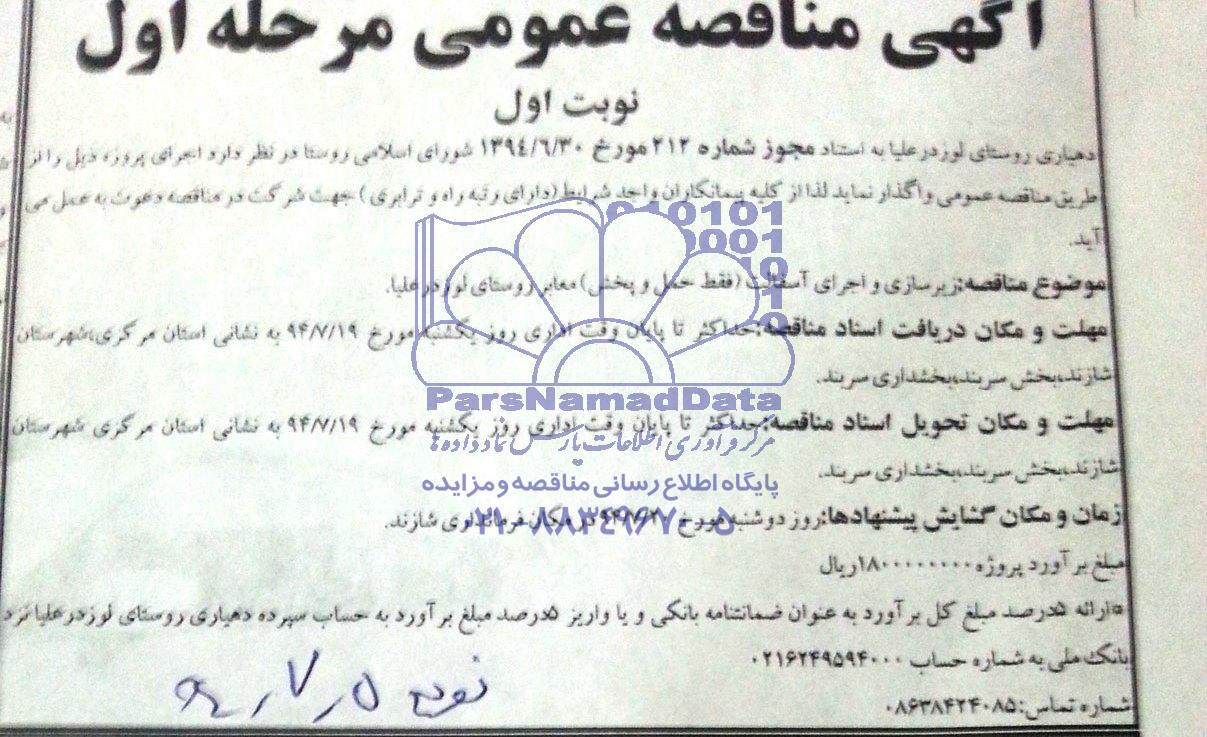 آگهی مناقصه عمومی مرحله اول
نوبت اول
دهیاری روستای لوزدرعلیا به استناد مجوز شماره ۲۱۲ مورخ ۱۳۹٤/٦/۳۰ شورای اسلامی روستا در نظر دارد اجرای پروژه ذیل را از
طریق مناقصه عمومی واگذار نماید لذا از کلیه پیمانکاران واجد شرایط (دارای رتبه راه و ترابری) جهت شرکت در مناقصه دعوت به عمل می
آید.
موضوع مناقصه:زیرسازی و اجرای آسفالت (فقط حمل و پخش) معابر روستای لوزدرعلیا.
مهلت و مکان دریافت اسناد مناقصه:حداکثر تا پایان وقت اداری روز یکشنبه مورخ ۹۴/۷/۱۹ به نشانی استان مرکزی،شهرستان
شازند،بخش سربند،بخشداری سربند.
ParsNamadData
مهلت و مکان تحویل اسناد مناقصه:حداکثر تا پایان وقت اداری روز یکشنبه مورخ ۹۴/۷/۱۹ به نشانی استان مرکزی شهرستان
مرکز فرآوری اطلاعات پارس نماد داده ها
شازند،بخش سربند،بخشداری سربند.
پایگاه اطلاع رسانی مناقصه و مزایده
زمان و مکان گشایش پیشنهادها:روز دوشنبه مورخ در مکان فرمانداری شازند.
۰۲۱-۸۸۳٤۹۶۷۰-۵
مبلغ برآورد پروژه ۱۸۰۰۰۰۰۰۰۰۰ریال
*ارائه ۵درصد مبلغ کل برآورد به عنوان ضمانتنامه بانکی و یا واریز ۵درصد مبلغ برآورد به حساب سپرده دهیاری روستای لوزدرعلیا نزد
بانک ملی به شماره حساب ۰۲۱۶۲۴۹۵۹۴۰۰۰
شماره تماس:۰۸۶۳۸۴۲۴۰۸۵